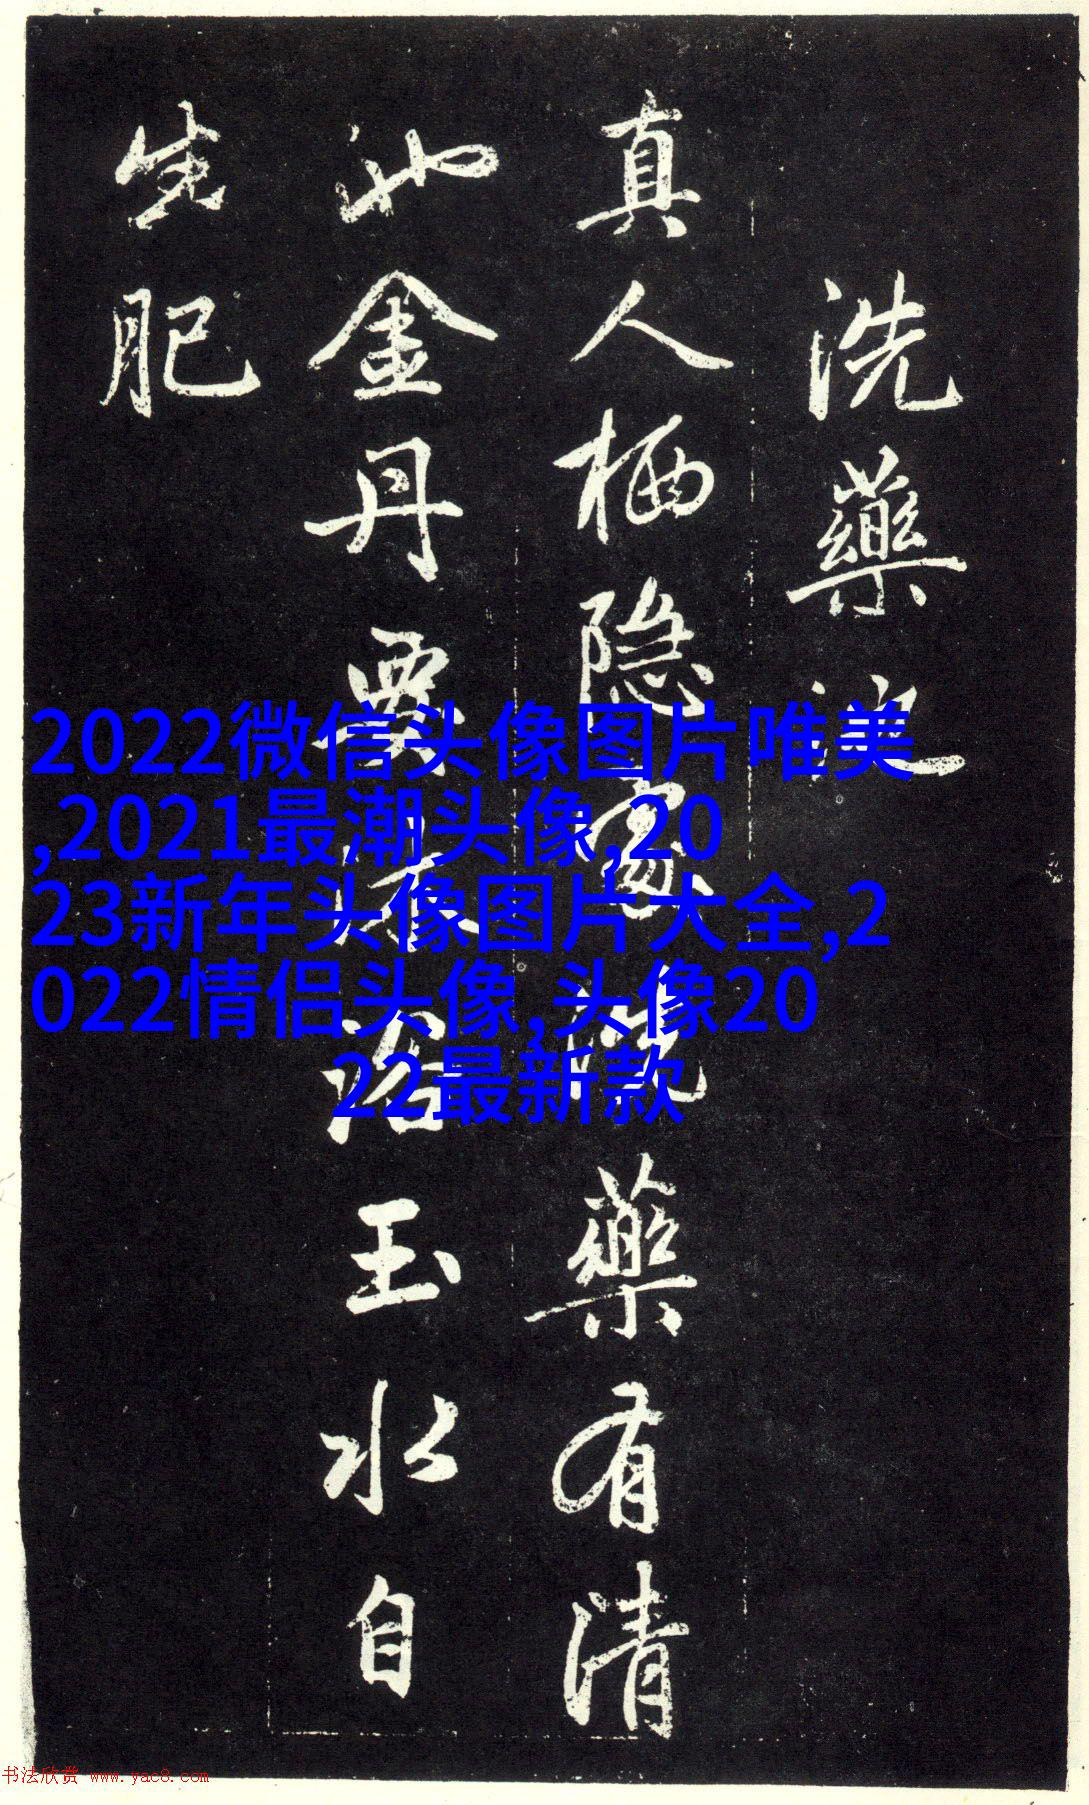 洗藥池
真人栖隐處洗藥有清
池金丹要沐浴玉水自
生肥
2022微信头像图片唯美
,2021最潮头像,20
23新年头像图片大全,2
022情侣头像,头像20
22最新款
书法欣赏 www.yac8.com